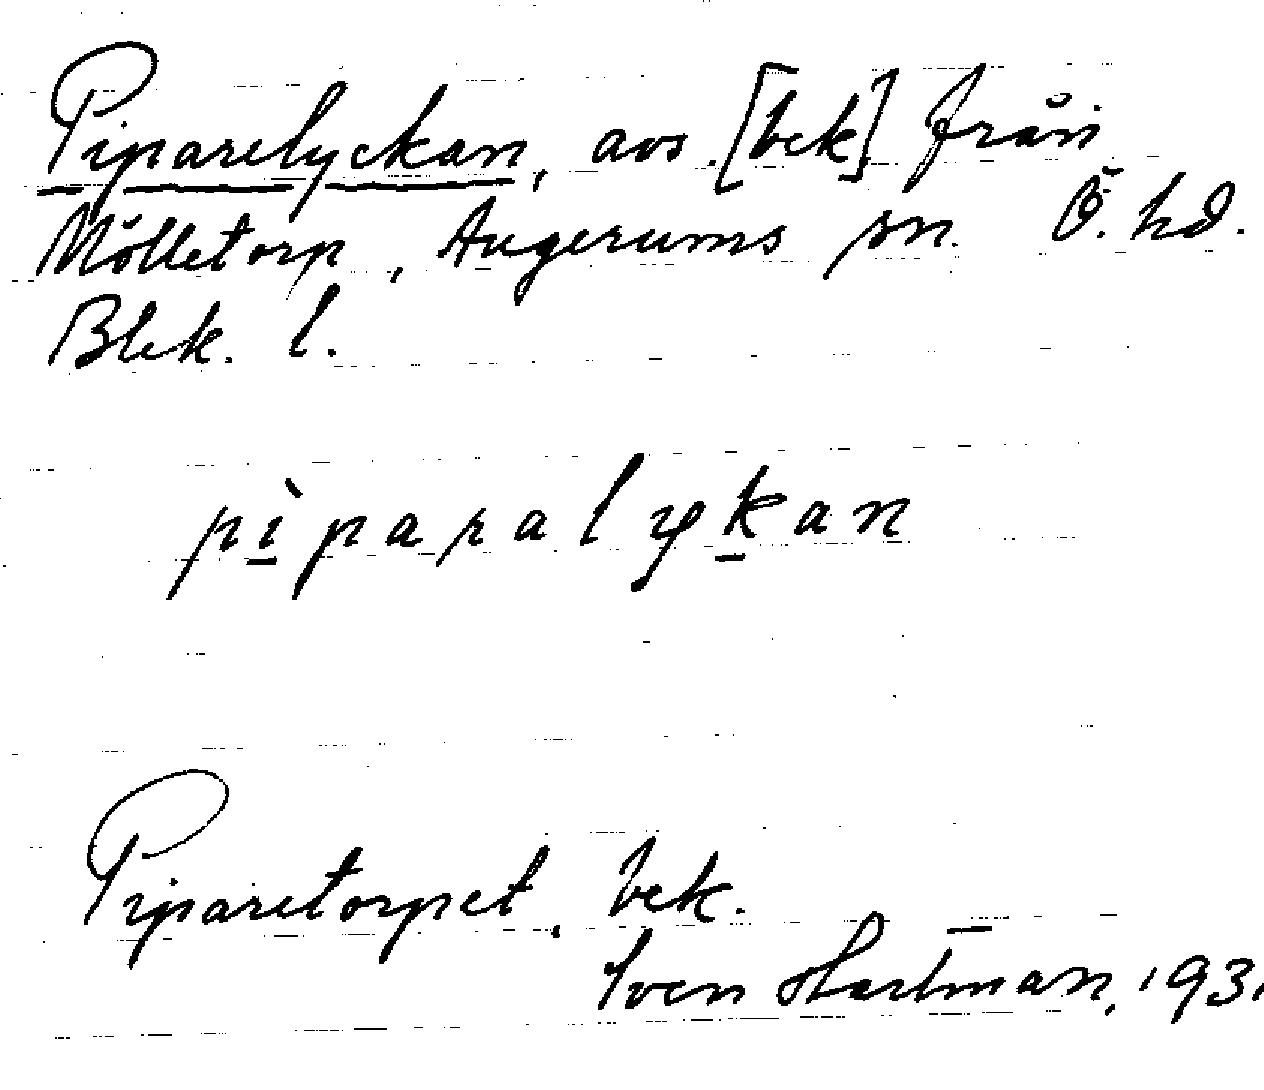 Piparelyckan, avs. [bek] från
Mölletorp, Augerums sn. Ö. hd.
Blek. l.
pìparalykan
Piparetorpet, bek.
Sven Hartman, 193